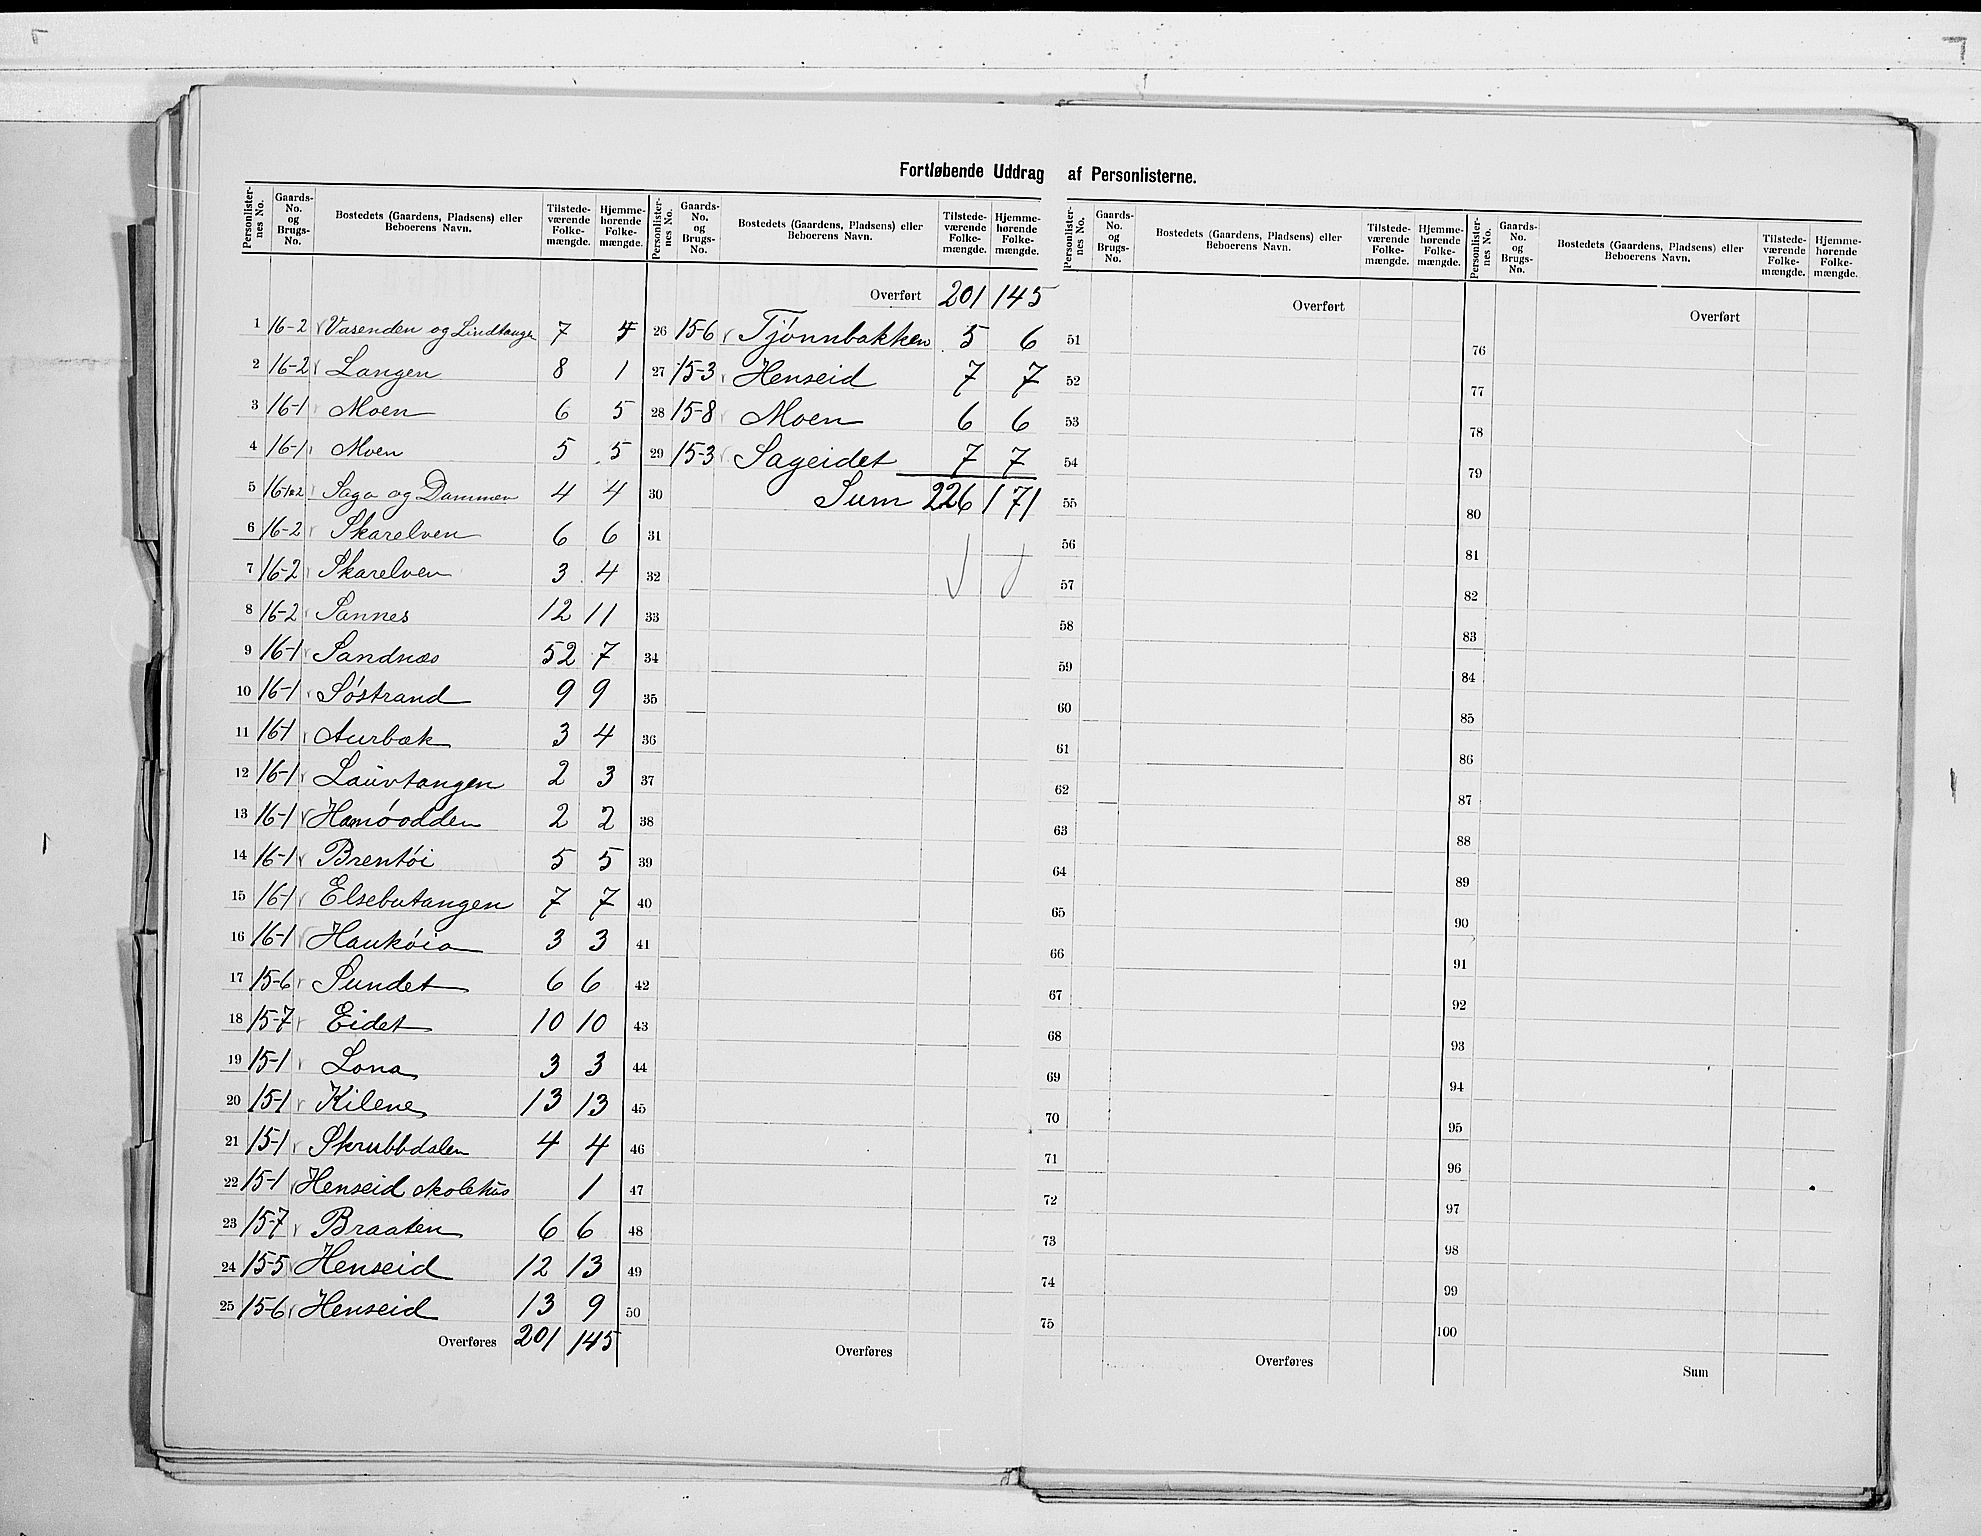 Fortløbende Uddrag af Personlisterne.
Personlister-nes No. Gaards-No. og Brugs-No. Bostedets (Gaardens, Pladsens) eller Beboerens Navn. Tilstede-værende Folke-mængde. Hjemme-hørende Folke-mængde.
1 16-2 Vasenden og Lindtangen 7 4
2 16-2 Langen 8 1
3 16-1 Moen 6 5
4 16-1 Moen 5 5
5 16-1&2 Saga og Dammen 4 4
6 16-2 Skarelven 6 6
7 16-2 Skarelven 3 4
8 16-2 Sannes 12 11
9 16-1 Sandnæs 52 7
10 16-1 Söstrand 9 9
11 16-1 Aurbæk 3 4
12 16-1 Lauvtangen 2 3
13 16-1 Hamöodden 2 2
14 16-1 Brentöi 5 5
15 16-1 Elsebutangen 7 7
16 16-1 Hauköia 3 3
17 15-6 Sundet 6 6
18 15-7 Eidet 10 10
19 15-1 Lona 3 3
20 15-1 Kilene 13 13
21 15-1 Skrubbdalen 4 4
22 15-1 Henseid skolehus 1
23 15-7 Braaten 6 6
24 15-5 Henseid 12 13
25 15-6 Henseid 13 9
Overføres 201 145
Personlister-nes No. Gaards-No. og Brugs-No. Bostedets (Gaardens, Pladsens) eller Beboerens Navn. Tilstede-værende Folke-mængde. Hjemme-hørende Folke-mængde.
Overført 201 145
26 15-6 Tjönnbakken 5 6
27 15-3 Henseid 7 7
28 15-8 Moen 6 6
29 15-3 Sageidet 7 7
30 Sum 226 171
31
32
33
34
35
36
37
38
39
40
41
42
43
44
45
46
47
48
49
50
Overføres
Personlister-nes No. Gaards-No. og Brugs-No. Bostedets (Gaardens, Pladsens) eller Beboerens Navn. Tilstede-værende Folke-mængde. Hjemme-hørende Folke-mængde.
Overført
51
52
53
54
55
56
57
58
59
60
61
62
63
64
65
66
67
68
69
70
71
72
73
74
75
Overføres
Personlister-nes No. Gaards-No. og Brugs-No. Bostedets (Gaardens, Pladsens) eller Beboerens Navn. Tilstede-værende Folke-mængde. Hjemme-hørende Folke-mængde.
Overført
76
77
78
79
80
81
82
83
84
85
86
87
88
89
90
91
92
93
94
95
96
97
98
99
100
Sum